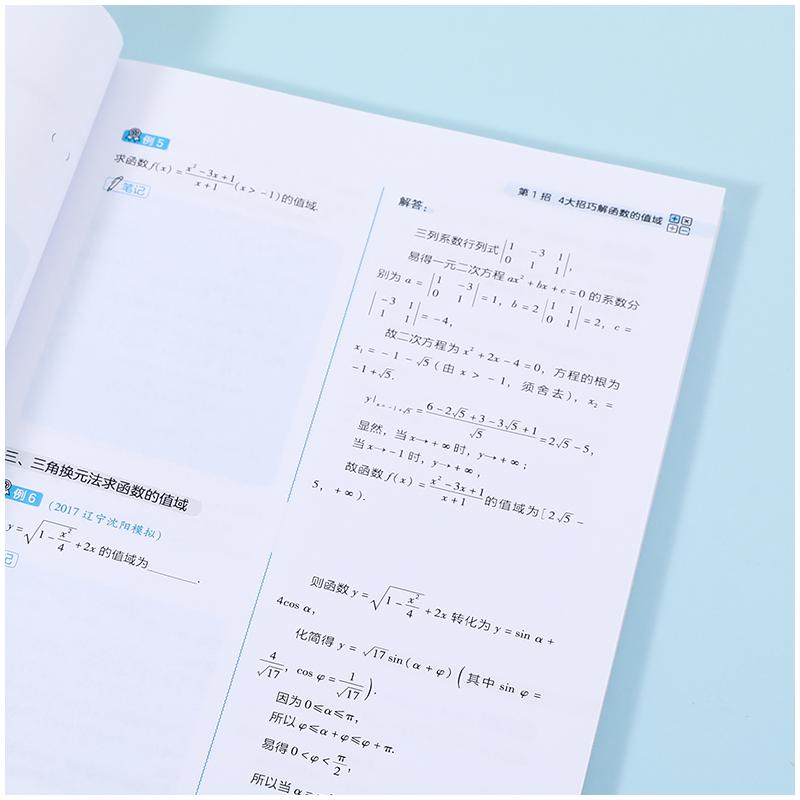 (
)
例5
求函数f(x)=\frac{x²-3x+1}{x+1}(x>-1)的值域.
笔记
三、三角换元法求函数的值域
例6 (2017 辽宁沈阳模拟)
y=\sqrt{1-\frac{x²}{4}}+2x的值域为______.
记
第1招 4大招巧解函数的值域
解答:
三列系数行列式|1 -3 1; 0 1 1|,
易得一元二次方程ax²+bx+c=0的系数分
别为a=|1 -3; 0 1|=1, b=2|1 1; 0 1|=2, c=
|-3 1; 1 1|=-4,
故二次方程为x²+2x-4=0, 方程的根为
x₁=-1-√5(由x>-1, 须舍去), x₂=
-1+√5.
y|ₓ₌₋₁₊√5=\frac{6-2√5+3-3√5+1}{√5}=2√5-5,
显然, 当x→+∞时, y→+∞;
当x→-1时, y→+∞,
故函数f(x)=\frac{x²-3x+1}{x+1}的值域为[2√5-
5, +∞).
则函数y=\sqrt{1-\frac{x²}{4}}+2x转化为y=sin α+
4cos α,
化简得y=√17sin(α+φ)(其中sin φ=
\frac{4}{√17}, cos φ=\frac{1}{√17}).
因为0≤α≤π,
所以φ≤α+φ≤φ+π.
易得0<φ<\frac{π}{2},
所以当α